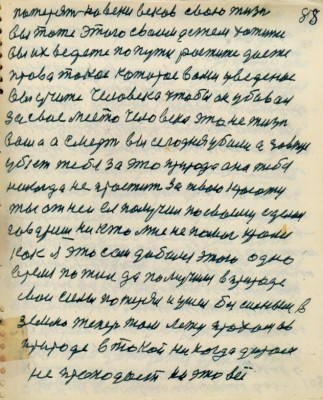 88
потерять на веки веков свою жизнь
Вы тоже этого своим детям хотите
Вы их ведете по пути растите даете
права такое которое вами введеное
Вы учите человека чтобы он убивал
за свое место человека это не жизнь
ваша а смерть вы сегодня убили а завтра
убьет тебя за это природа она тебя
никогда не простит за твою красоту
ты от ней ее получил по своему сделал
говоришь никто мне не помог кроме
как я это сам добился этого одно
время пожил да получил в природе
свои силы потерял и ушел бы сильный в
землю теперь там лежу прахом в
природе в такой никогда
не проходает на это все